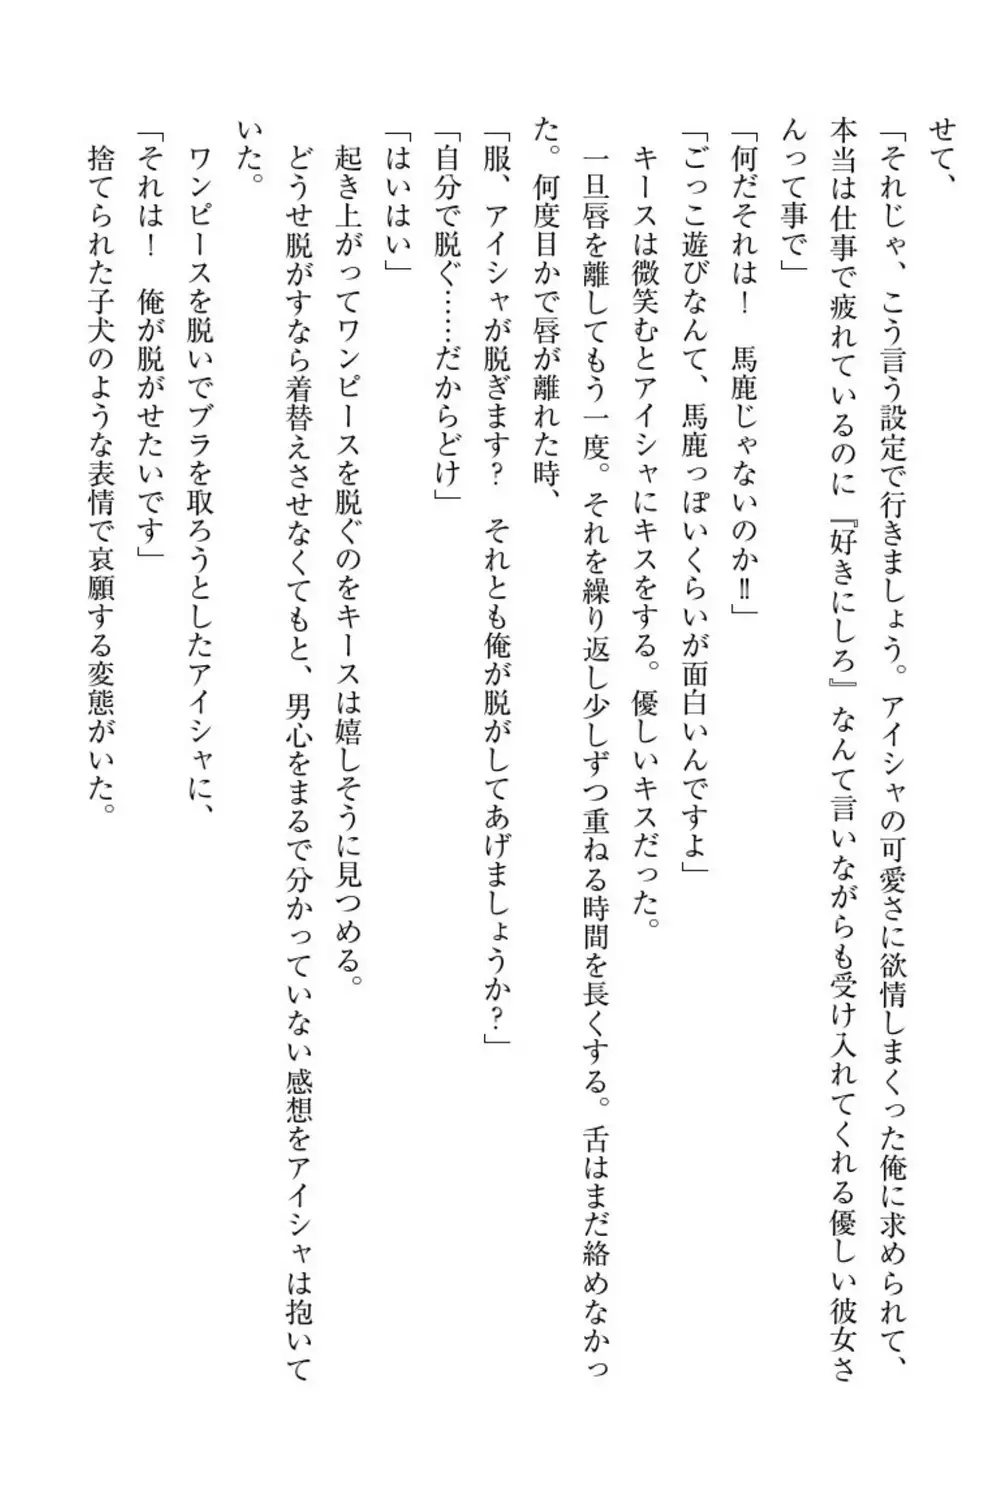 せて、
「それじゃ、こう言う設定で行きましょう。アイシャの可愛さに欲情しまくった俺に求められて、
本当は仕事で疲れているのに『好きにしろ』なんて言いながらも受け入れてくれる優しい彼女さ
んって事で」
「何だそれは！　馬鹿じゃないのか‼」
「ごっこ遊びなんて、馬鹿っぽいくらいが面白いんですよ」
　キースは微笑むとアイシャにキスをする。優しいキスだった。
　一旦唇を離してもう一度。それを繰り返し少しずつ重ねる時間を長くする。舌はまだ絡めなかっ
た。何度目かで唇が離れた時、
「服、アイシャが脱ぎます？　それとも俺が脱がしてあげましょうか？」
「自分で脱ぐ……だからどけ」
「はいはい」
　起き上がってワンピースを脱ぐのをキースは嬉しそうに見つめる。
　どうせ脱がすなら着替えさせなくてもと、男心をまるで分かっていない感想をアイシャは抱いて
いた。
　ワンピースを脱いでブラを取ろうとしたアイシャに、
「それは！　俺が脱がせたいです」
　捨てられた子犬のような表情で哀願する変態がいた。